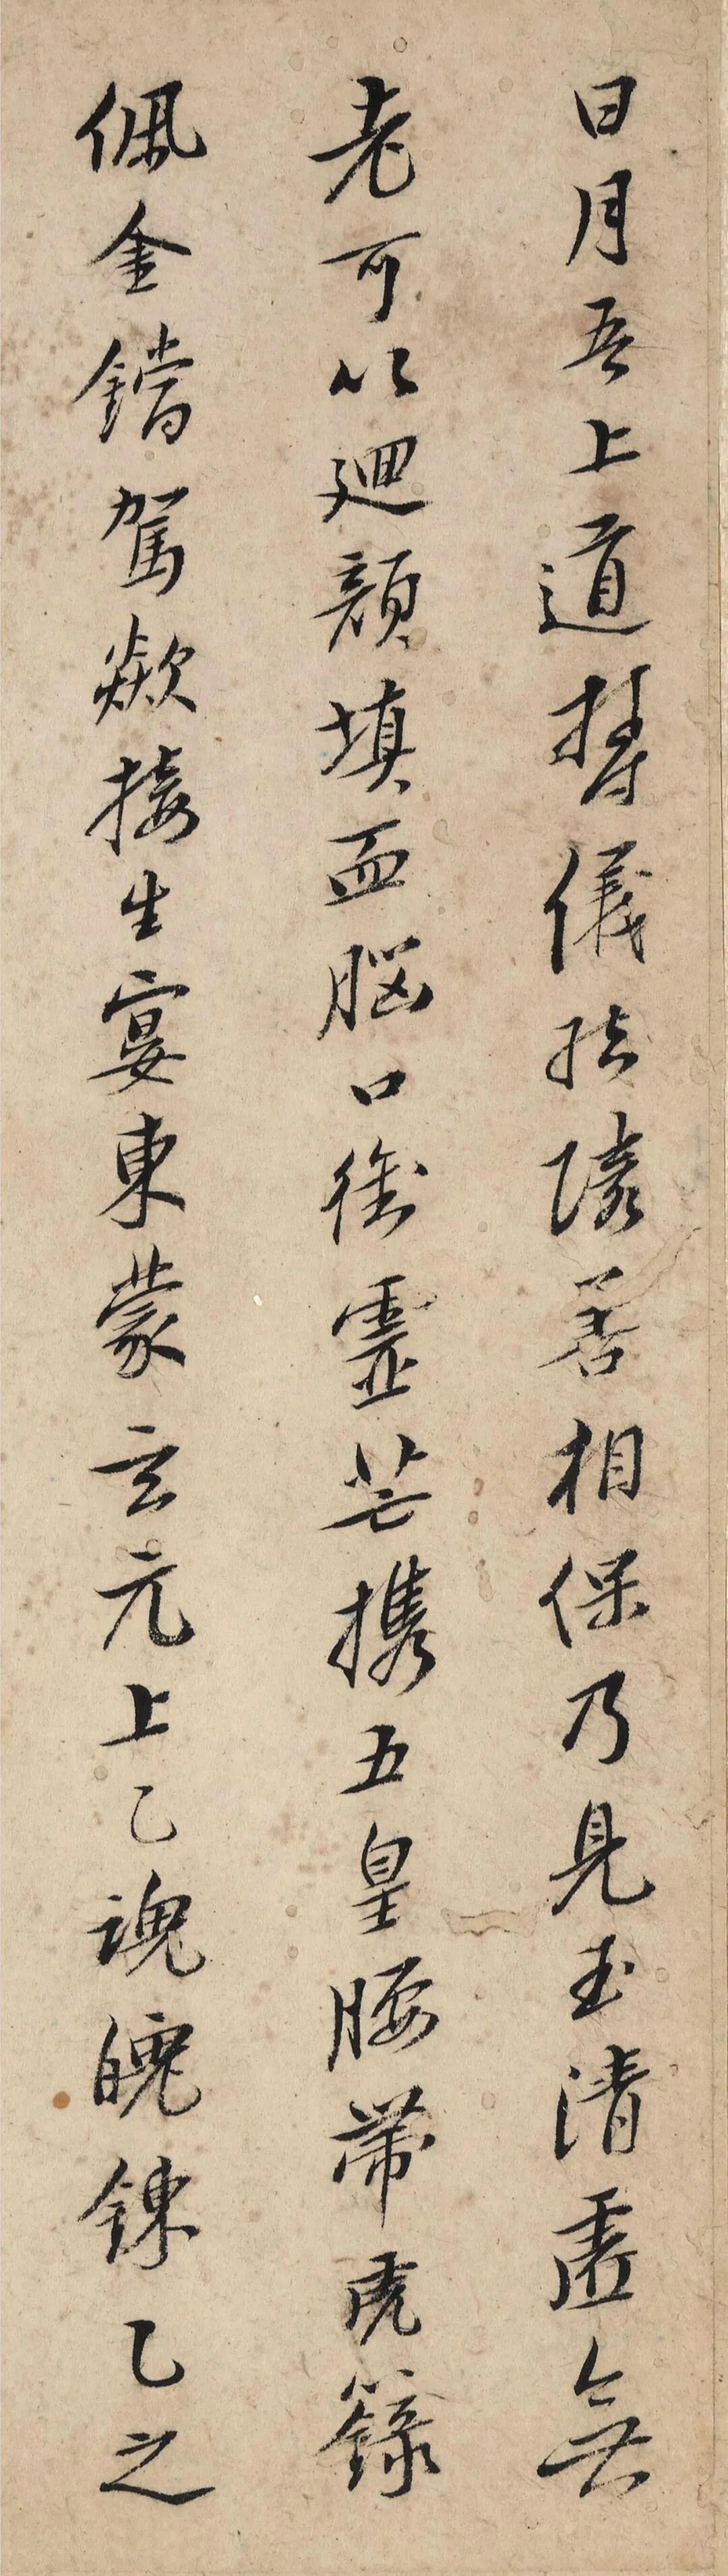 日月吾上道鬱儀結璘善相保乃見玉清虛無
老可以迴顏填血腦口銜靈芒攜五皇腰帶虎籙
佩金鐺駕欻接生宴東蒙玄元上乙魂魄鍊乙之